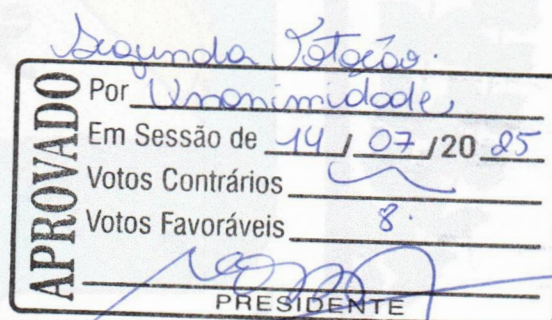 Segunda Votação.
APROVADO
Por Unanimidade
Em Sessão de 14 / 07 /20 25
Votos Contrários
Votos Favoráveis 8.
PRESIDENTE